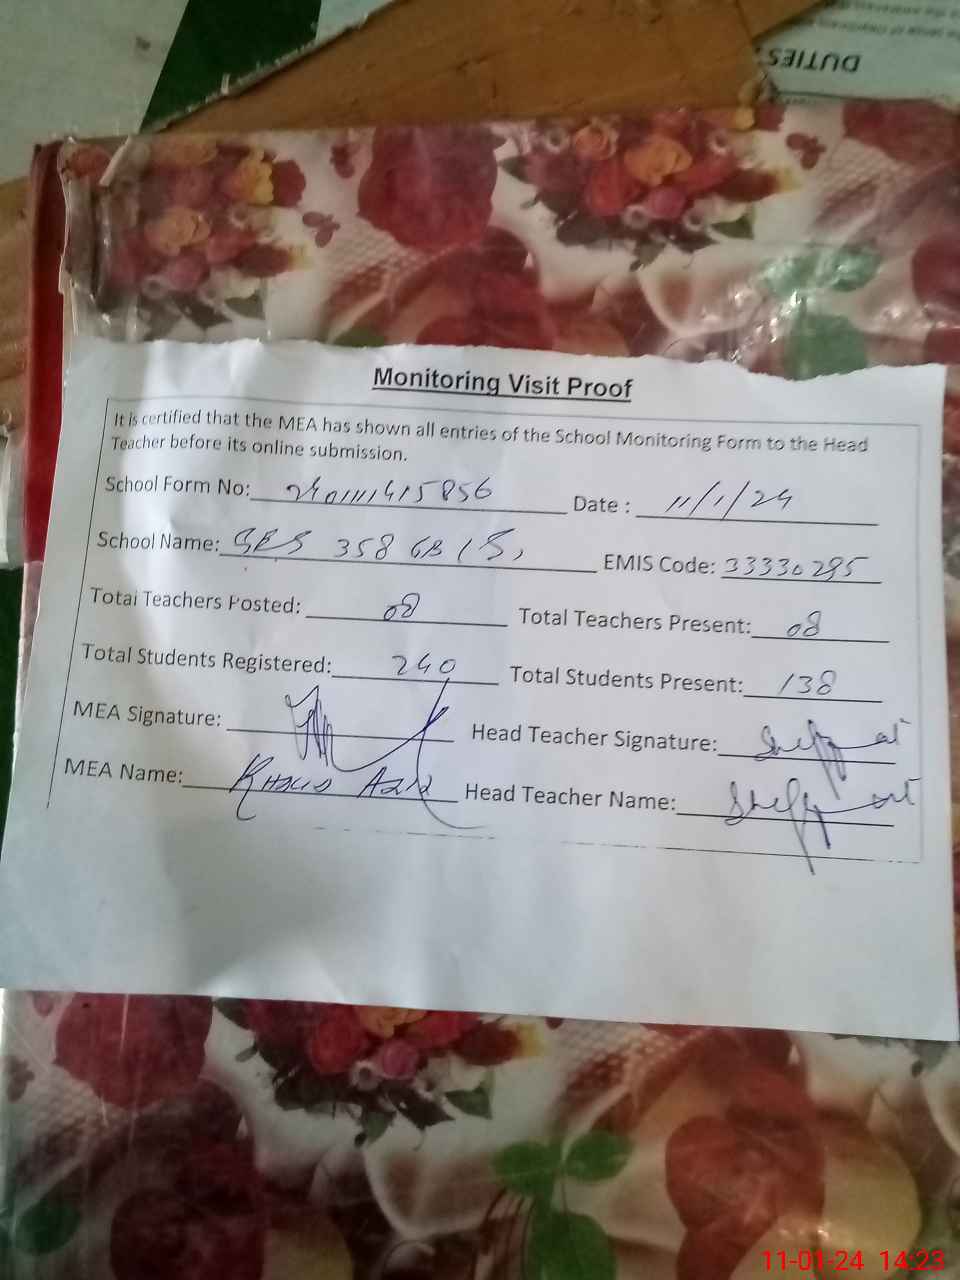 DUTIES:
Monitoring Visit Proof
It is certified that the MEA has shown all entries of the School Monitoring Form to the Head
Teacher before its online submission.
School Form No: 2401111415856 Date : 11/1/24
School Name: GES 358 GB (S) EMIS Code: 33330295
Total Teachers Posted: 08 Total Teachers Present: 08
Total Students Registered: 240 Total Students Present: 138
MEA Signature: Head Teacher Signature:
MEA Name: Khalid Aziz Head Teacher Name:
11-01-24 14:23